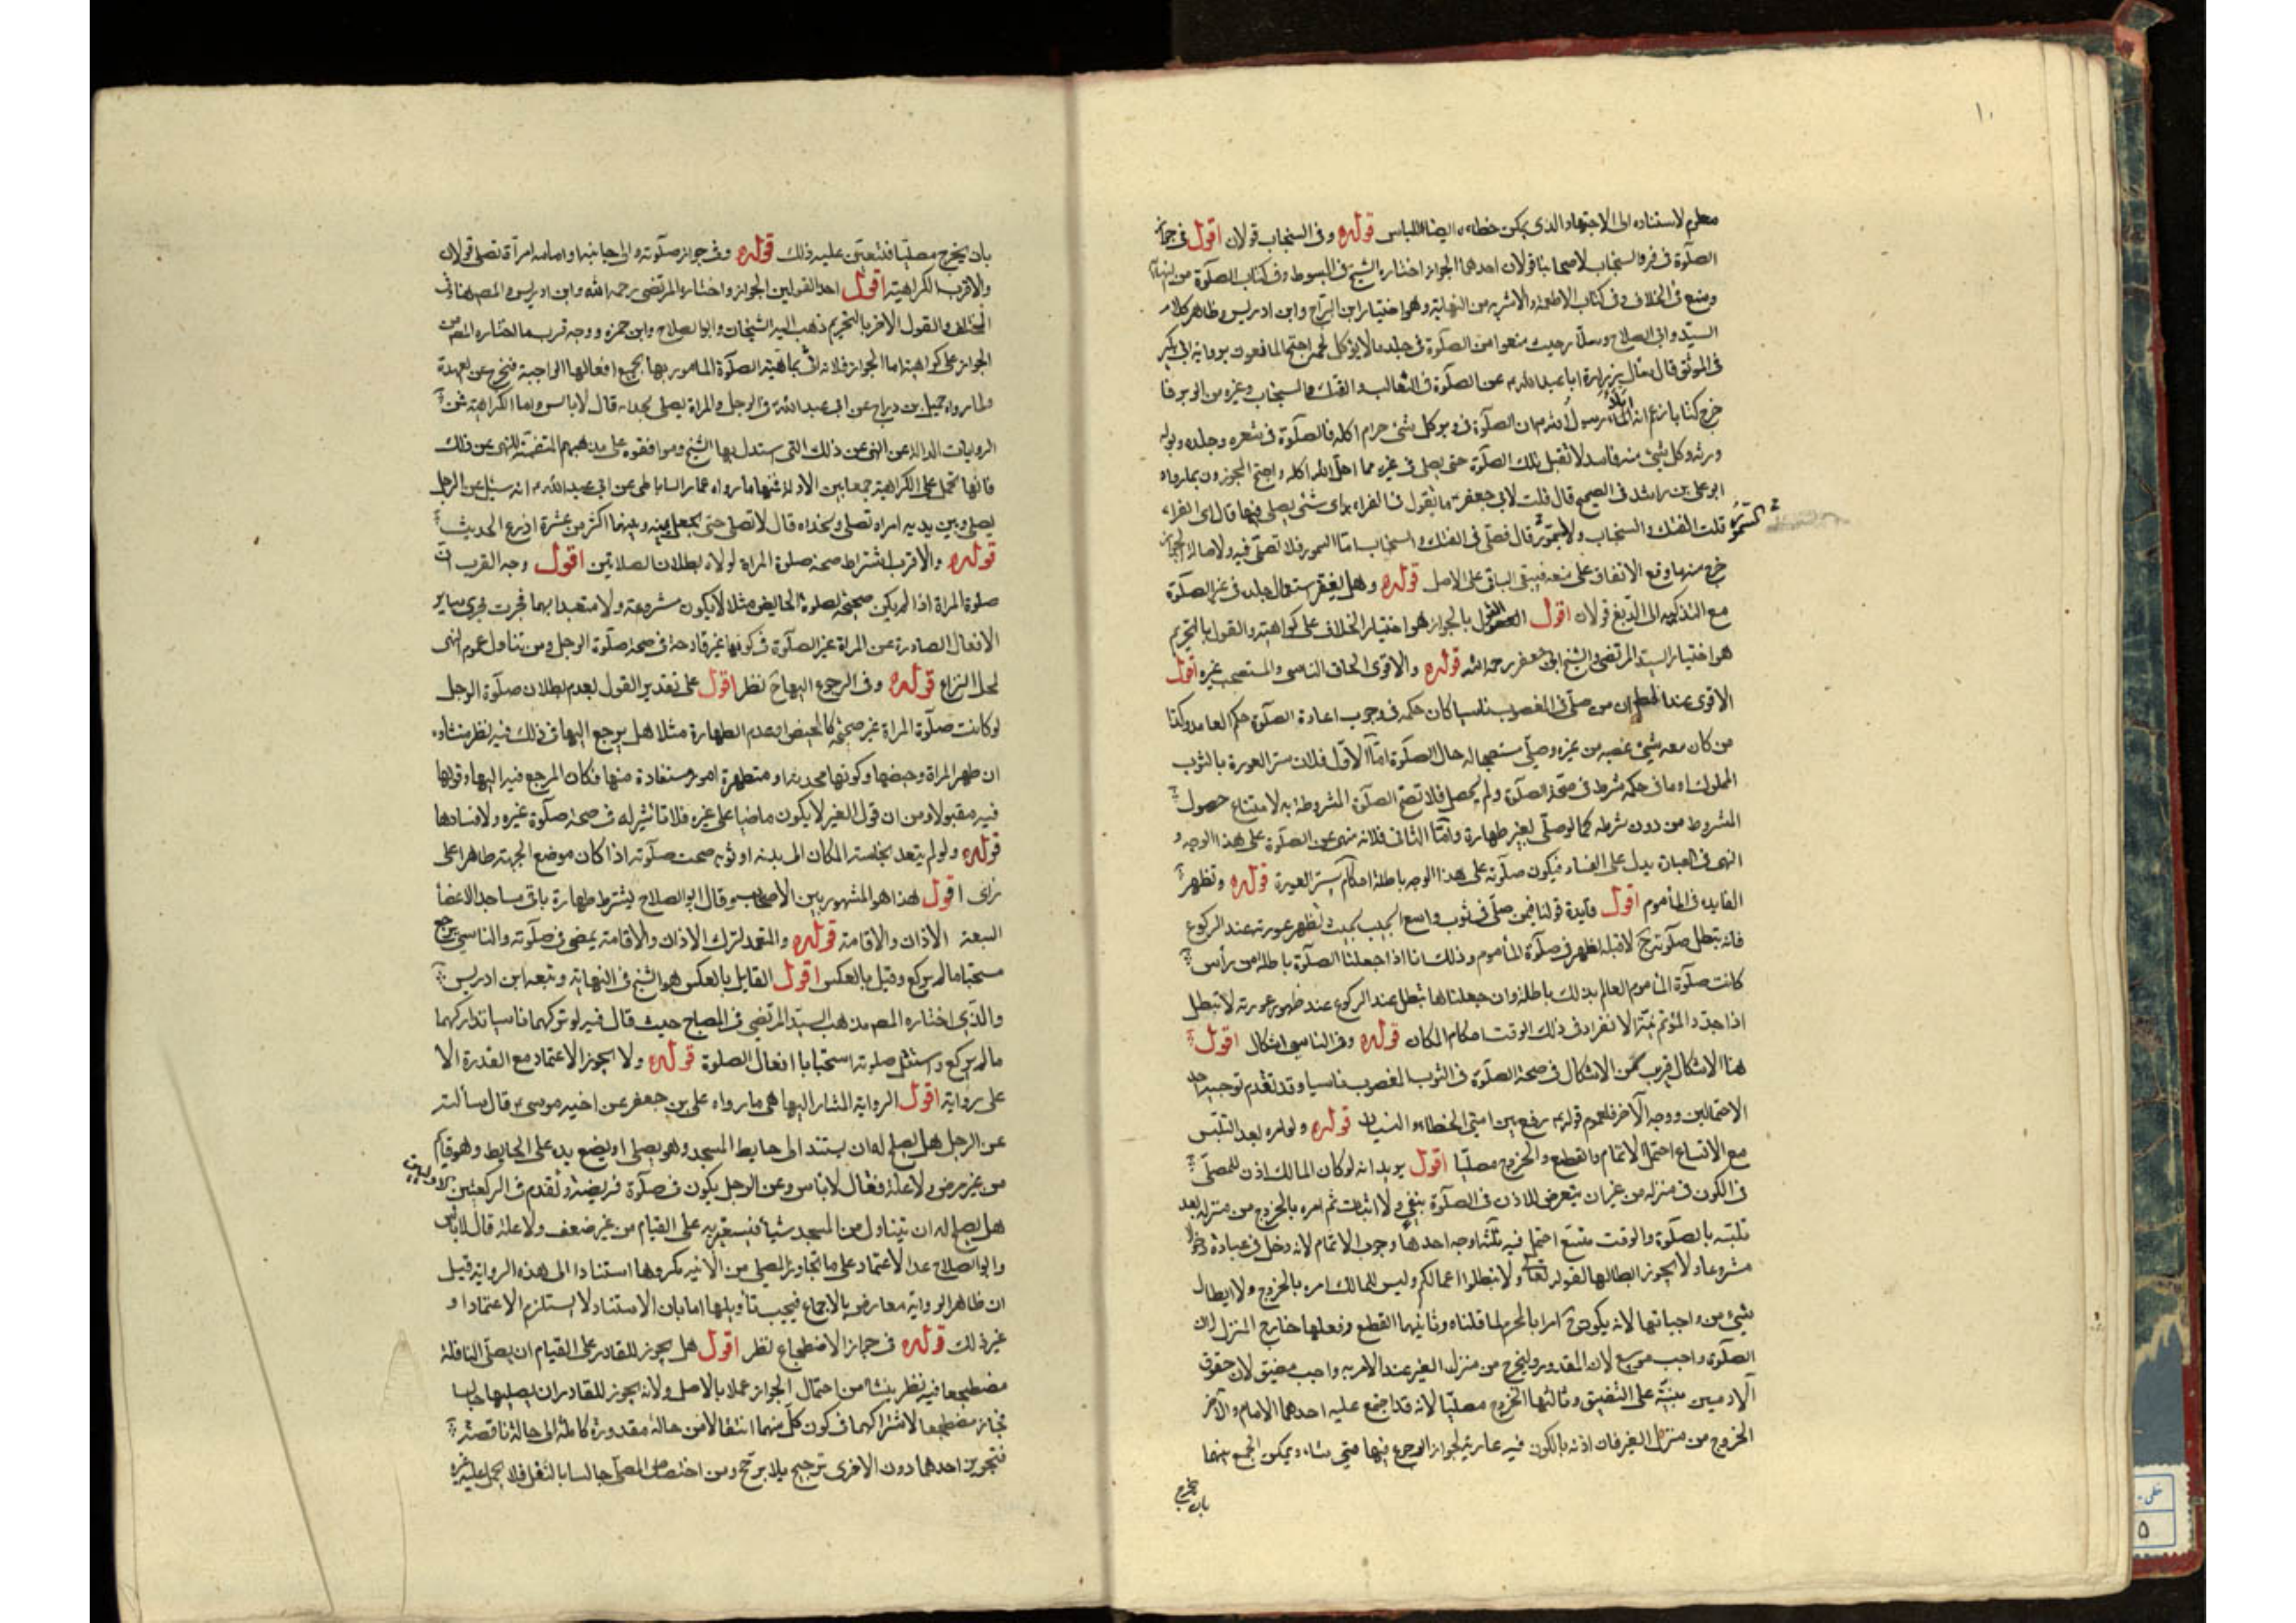 ١٠
معلوم لاستناده الى الاجتهاد الذى يمكن خطاءه ايضا اللباس قوله وفى السنجاب قولان اقول فى جواز
الصلوة فى فرو السنجاب لاصحابنا قولان احدهما الجواز اختاره الشيخ فى المبسوط وفى كتاب الصلوة من النهاية
ومنع فى الخلاف وفى كتاب الاطعمة والاشربه من النهاية وهو اختيار ابن البراج وابن ادريس وظاهر كلام
السيد وابى الصلاح وسلار حيث منعوا من الصلوة فى جلد ما لا يؤكل لحمه احتج المانعون برواية ابن بكير
فى الموثق قال سال زرارة ابا عبد الله عن الصلوة فى الثعالب والفنك والسنجاب وغيره من الوبر فا
خرج كتابا زعم انه املاء رسول الله ان الصلوة فى وبر كل شئ حرام اكله فالصلوة فى شعره وجلده وبوله
وروثه وكل شئ منه فاسد لا تقبل تلك الصلوة حتى يصلى فى غيره مما احل الله اكله واحتج المجوزون بما رواه
ابو على بن راشد فى الصحيح قال قلت لابى جعفر ما تقول فى الفراء اى شئ يصلى فيها قال اى الفراء
قلت الفنك والسنجاب والسمور قال فصلى فى الفنك والسنجاب اما السمور فلا تصلى فيه ولاصالة
السمور
خرج منها وقع الاتفاق على منعه فيبقى الباقى على الاصل قوله وهل يفتقر استعمال جلده فى غير الصلوة
مع التذكية الى الدبغ قولان اقول القول بالجواز هو اختيار الخلاف على كراهية والقول بالتحريم
هو اختيار السيد المرتضى والشيخ ابى جعفر رحمه الله قوله والاقوى الحاق الناسى والمستصحب غيره اقول
الاقوى عند المص ان من صلى فى المغصوب ناسيا كان حكمه فى وجوب اعادة الصلوة حكم العامد وكذا
من كان معه شئ غصبه من غيره وصلى مستصحبا له حال الصلوة اما الاول فلان ستر العورة بالثوب
المملوك او ما فى حكمه شرط فى صحة الصلوة ولم يحصل فلا تصح الصلوة المشروطة به لامتناع حصول
المشروط من دون شرطه كما لو صلى بغير طهارة واما الثانى فلانه منهى عن الصلوة على هذا الوجه و
النهى فى العبادة يدل على الفساد فيكون صلوته على هذا الوجه باطلة احكام ستر العورة قوله وتظهر
الفايده فى المأموم اقول فايدة قولنا فيمن صلى فى ثوب واسع الجيب بحيث تظهر عورته عند الركوع
فانه تبطل صلوته ح لا قبله تظهر فى صلوة المأموم وذلك انا اذا جعلنا الصلوة باطلة من رأس
كانت صلوة المأموم العالم بذلك باطلة وان جعلناها تبطل عند الركوع عند ظهور عورته لا تبطل
اذا جدد المؤتم نية الانفراد فى ذلك الوقت احكام المكان قوله وفى الناسى اشكال اقول
هنا الاشكال قريب من الاشكال فى صحة الصلوة فى الثوب المغصوب ناسيا وقد تقدم توجيه احد
الاحتمالين ووجه الاخر فلعموم قوله رفع عن امتى الخطاء والنسيان قوله ولو امره بعد التلبس
مع الاتساع احتمل الاتمام والقطع والخروج مصليا اقول يريد انه لو كان المالك اذن للمصلى
فى الكون فى منزله من غير ان يتعرض للاذن فى الصلوة بنفى ولا اثبات ثم امره بالخروج من منزله بعد
تلبسه بالصلوة والوقت متسع احتمل فيه ثلثة اوجه احدها وجوب الاتمام لانه دخل فى عبادة دخولا
مشروعا ولا يجوز ابطالها لقوله تعالى ولا تبطلوا اعمالكم وليس للمالك امره بالخروج ولا ابطال
شئ من واجباتها لانه يكون ح امرا بالمحرم لما قلناه وثانيها القطع وفعلها خارج المنزل لان
الصلوة واجب موسع لان المقدور والخروج من منزل الغير عند الامر به واجب مضيق لان حقوق
الادميين مبنية على التضييق وثالثها الخروج مصليا لانه قد اجتمع عليه احدهما الاتمام والاخر
الخروج من منزل الغير فان اذنه بالكون فيه عارية يجوز الرجوع فيها متى شاء ويمكن الجمع بينهما
بان يخرج
بان يخرج مصليا فتعين عليه ذلك قوله وفى جواز صلوته والى جانبه او امامه امرأة تصلى قولان
والاقرب الكراهية اقول احد القولين الجواز واختاره المرتضى رحمه الله وابن ادريس والمص هنا فى
المختلف والقول الاخر بالتحريم ذهب اليه الشيخان وابو الصلاح وابن حمزه ووجه قرب ما اختاره المص من
الجواز على كراهية اما الجواز فلانه اتى بماهية الصلوة المامور بها بجميع افعالها الواجبة فيخرج عن العهدة
ولما رواه جميل بن دراج عن ابى عبد الله فى الرجل والمراة يصلى بحذاه قال لا باس واما الكراهية فمن
الروايات الدالة عن النهى عن ذلك التى استدل بها الشيخ وموافقوه على مذهبهم المتضمنة للنهى عن ذلك
فانها تحمل على الكراهية جمعا بين الادلة فمنها ما رواه عمار الساباطى عن ابى عبد الله انه سئل عن الرجل
يصلى وبين يديه امراه تصلى وبحذاه قال لا تصلى حتى يجعل بينه وبينها اكثر من عشرة اذرع الحديث
قوله والاقرب اشتراط صحة صلوة المراة لولاه لبطلان الصلاتين اقول وجه القرب ان
صلوة المراة اذا لم يكن صحيحة لصلوة الحايض مثلا لا يكون مشروعة ولا متعبدا بها فجرت مجرى ساير
الافعال الصادرة عن المراة غير الصلوة فى كونها غير قادحة فى صحة صلوة الرجل ومن تناول عموم النهى
لمحل النزاع قوله وفى الرجوع اليها ح نظر اقول على تقدير القول بعدم بطلان صلوة الرجل
لو كانت صلوة المراة غير صحيحة كالحيض او عدم الطهارة مثلا هل يرجع اليها فى ذلك فيه نظر ينشاء
ان طهر المراة وحيضها وكونها محدثة او متطهرة امور مستفادة منها فكان المرجع فيه اليها وقولها
فيه مقبولا ومن ان قول الغير لا يكون ماضيا على غيره فلا تاثير له فى صحة صلوة غيره ولا فسادها
قوله ولو لم يتعد نجاسة المكان الى بدنه او ثوبه صحت صلوته اذا كان موضع الجبهة طاهرا على
راى اقول هذا هو المشهور بين الاصحاب وقال ابو الصلاح يشترط طهارة باقى مساجد الاعضا
السبعة الاذان والاقامة قوله والمتعمد لترك الاذان والاقامة يمضى فى صلوته والناسى يرجع
مستحبا ما لم يركع وقيل بالعكس اقول القايل بالعكس هو الشيخ فى النهاية وتبعه ابن ادريس
والذى اختاره المص مذهب السيد المرتضى فى المصباح حيث قال فيه لو تركهما ناسيا تداركهما
ما لم يركع واستقبل صلوته استحبابا افعال الصلوة قوله ولا يجوز الاعتماد مع القدرة الا
على رواية اقول الرواية المشار اليها هى ما رواه على بن جعفر عن اخيه موسى قال سألته
عن الرجل هل يصلح له ان يستند الى حايط المسجد وهو يصلى او يضع يده على الحايط وهو قايم
من غير مرض ولا علة فقال لا باس وعن الرجل يكون فى صلوة فريضة وتقدم فى الركعتين الاوليين
هل يصلح له ان يتناول من المسجد شيأ فيستعين به على القيام من غير ضعف ولا علة قال لا باس
وابو الصلاح عد الاعتماد على ما تجاور المصلى من الابنيه مكروها استنادا الى هذه الرواية قيل
ان ظاهر الرواية معارض بالاجماع فيجب تأويلها اما بان الاستناد لا يستلزم الاعتماد او
غير ذلك قوله فى جواز الاضطجاع نظر اقول هل يجوز للقادر على القيام ان يصلى النافلة
مضطجعا فيه نظر ينشأ من احتمال الجواز عملا بالاصل ولانه يجوز للقادر ان يصليها جالسا
فجاز مضطجعا لاشتراكهما فى كون كل منهما انتقالا من حالة مقدورة كاملة الى حالة ناقصة
فتجويز احدهما دون الاخرى ترجيح بلا مرجح ومن اختصاص المصلى جالسا بالنقل فلا يحمل عليه غيره
على
٥